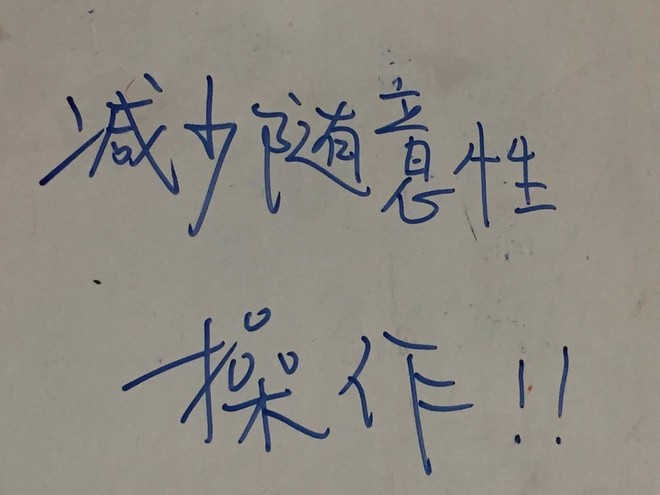 减少随意性
操作!!